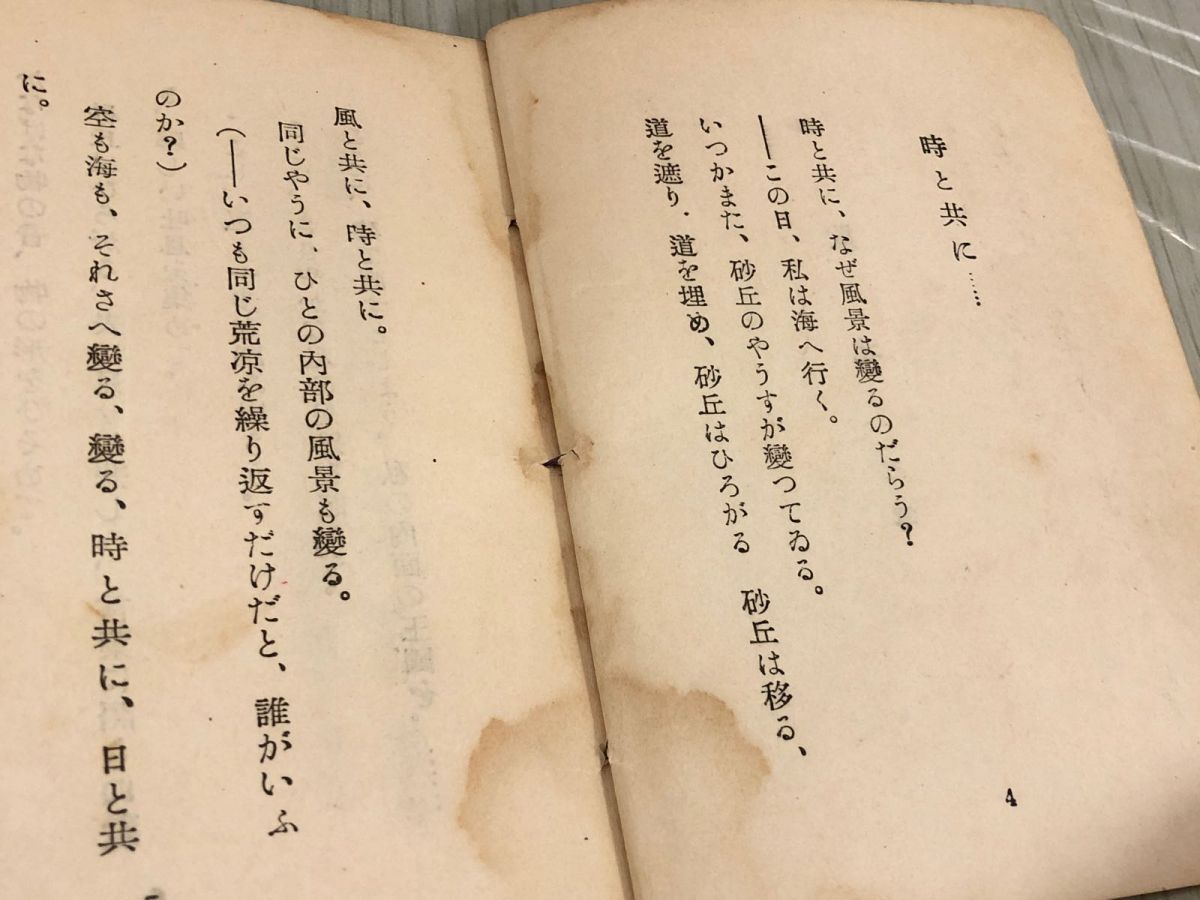 時と共に……
時と共に、なぜ風景は變るのだらう?
――この日、私は海へ行く。
いつかまた、砂丘のやうすが變つてゐる。
道を遮り、道を埋め、砂丘はひろがる 砂丘は移る、
4
風と共に、時と共に。
同じやうに、ひとの內部の風景も變る。
(――いつも同じ荒凉を繰り返すだけだと、誰がいふ
のか?)
空も海も、それさへ變る、變る、時と共に、日と共
に。